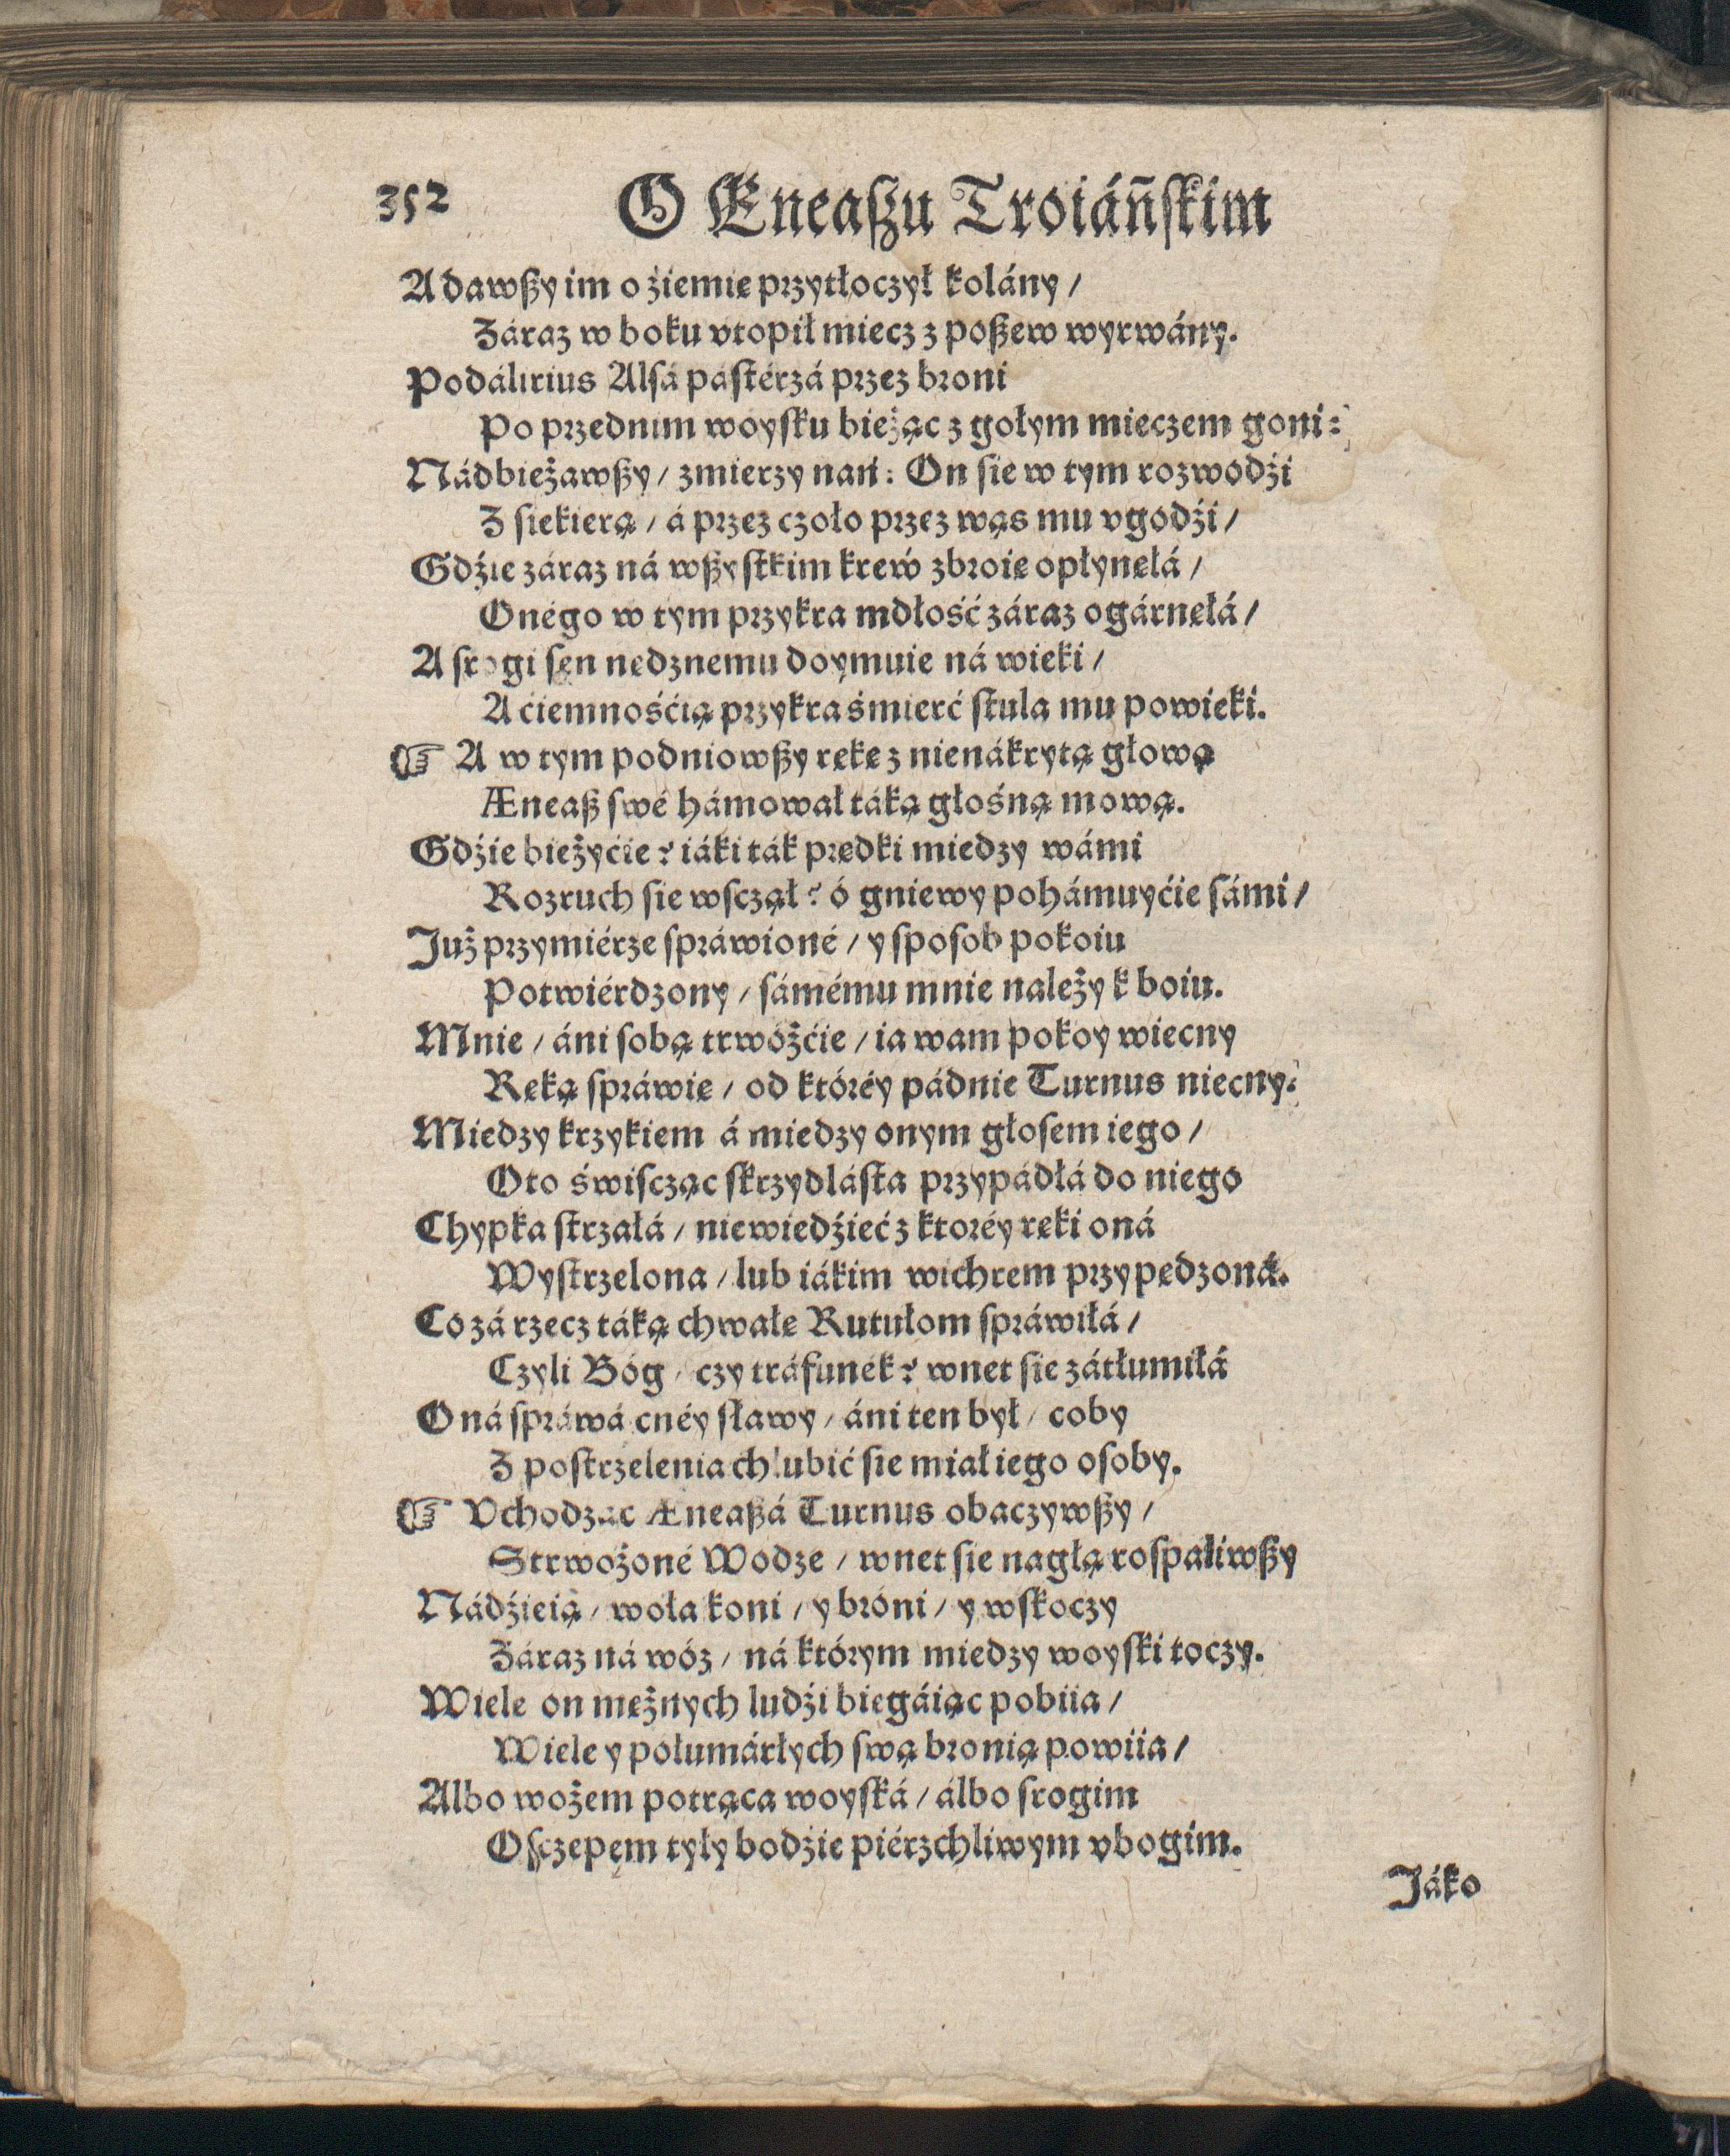 352 O Eneaßu Troiáñſkim
A dawßy im o źiemię przytłoczył kolány /
Záraz w boku vtopił miecz z poßew wyrwány.
Podálirius Alſá páſtérzá przez broni
Po przednim woyſku bieżąc z gołym mieczem goni:
Nádbieżawßy / zmierzy nań: On ſie w tym rozwodźi
Z ſiekierą / á przez czoło przez wąs mu vgodźi /
Gdźie záraz ná wßyſtkim krew zbroię opłynęłá /
Onégo w tym przykra mdłość záraz ogárnęłá /
A ſrogi ſen nędznemu doymuie ná wieki /
A ćiemnośćią przykra śmierć ſtula mu powieki.
☞ A w tym podniowßy rękę z nienákrytą głową
Æneaß ſwé hámował táką głośną mową.
Gdźie bieżyćie? iáki ták prędki miedzy wámi
Rozruch ſie wſczął? ó gniewy pohámuyćie ſámi /
Już przymiérze ſpráwioné / y ſpoſob pokoiu
Potwiérdzony / ſámému mnie należy k boiu.
Mnie / áni ſobą trwóżćie / ia wam pokoy wiecny
Ręką ſpráwię / od któréy pádnie Turnus niecny.
Miedzy krzykiem á miedzy onym głoſem iego /
Oto świſcząc ſkrzydláſta przypádłá do niego
Chypka ſtrzałá / niewiedźieć z ktoréy ręki oná
Wyſtrzelona / lub iákim wichrem przypędzoná.
Co zá rzecz táką chwałę Rutułom ſpráwiłá /
Czyli Bóg / czy tráfunék? wnet ſie zátłumiłá
Oná ſpráwá cnéy ſławy / áni ten był / coby
Z poſtrzelenia chlubić ſie miał iego oſoby.
☞ Vchodząc Æneaßá Turnus obaczywßy /
Strwożoné Wodze / wnet ſie nagłą roſpaliwßy
Nádźieią / woła koni / y bróni / y wſkoczy
Záraz ná wóz / ná którym miedzy woyſki toczy.
Wiele on mężnych ludźi biegáiąc pobiia /
Wiele y połumárłych ſwą bronią powiia /
Albo wożem potrąca woyſká / álbo ſrogim
Oſczepem tyły bodźie piérzchliwym vbogim.
Jáko